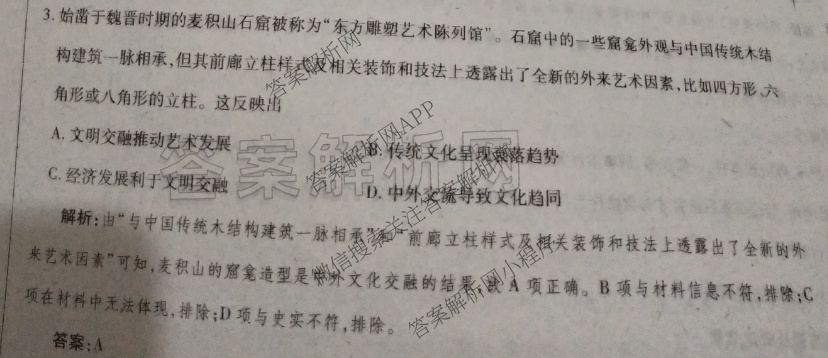 3. 始凿于魏晋时期的麦积山石窟被称为“东方雕塑艺术陈列馆”。石窟中的一些窟龛外观与中国传统木结
构建筑一脉相承,但其前廊立柱样式及相关装饰和技法上透露出了全新的外来艺术因素,比如四方形、六
角形或八角形的立柱。这反映出
A. 文明交融推动艺术发展
B. 传统文化呈现衰落趋势
C. 经济发展利于文明交融
D. 中外交流导致文化趋同
解析:由“与中国传统木结构建筑一脉相承”和“前廊立柱样式及相关装饰和技法上透露出了全新的外
来艺术因素”可知,麦积山的窟龛造型是中外文化交融的结果,故 A 项正确。B 项与材料信息不符,排除;C
项在材料中无法体现,排除;D 项与史实不符,排除。
答案:A
答案解析网
答案解析网APP
答案解析网
微信搜索关注答案解析网
答案解析网小程序